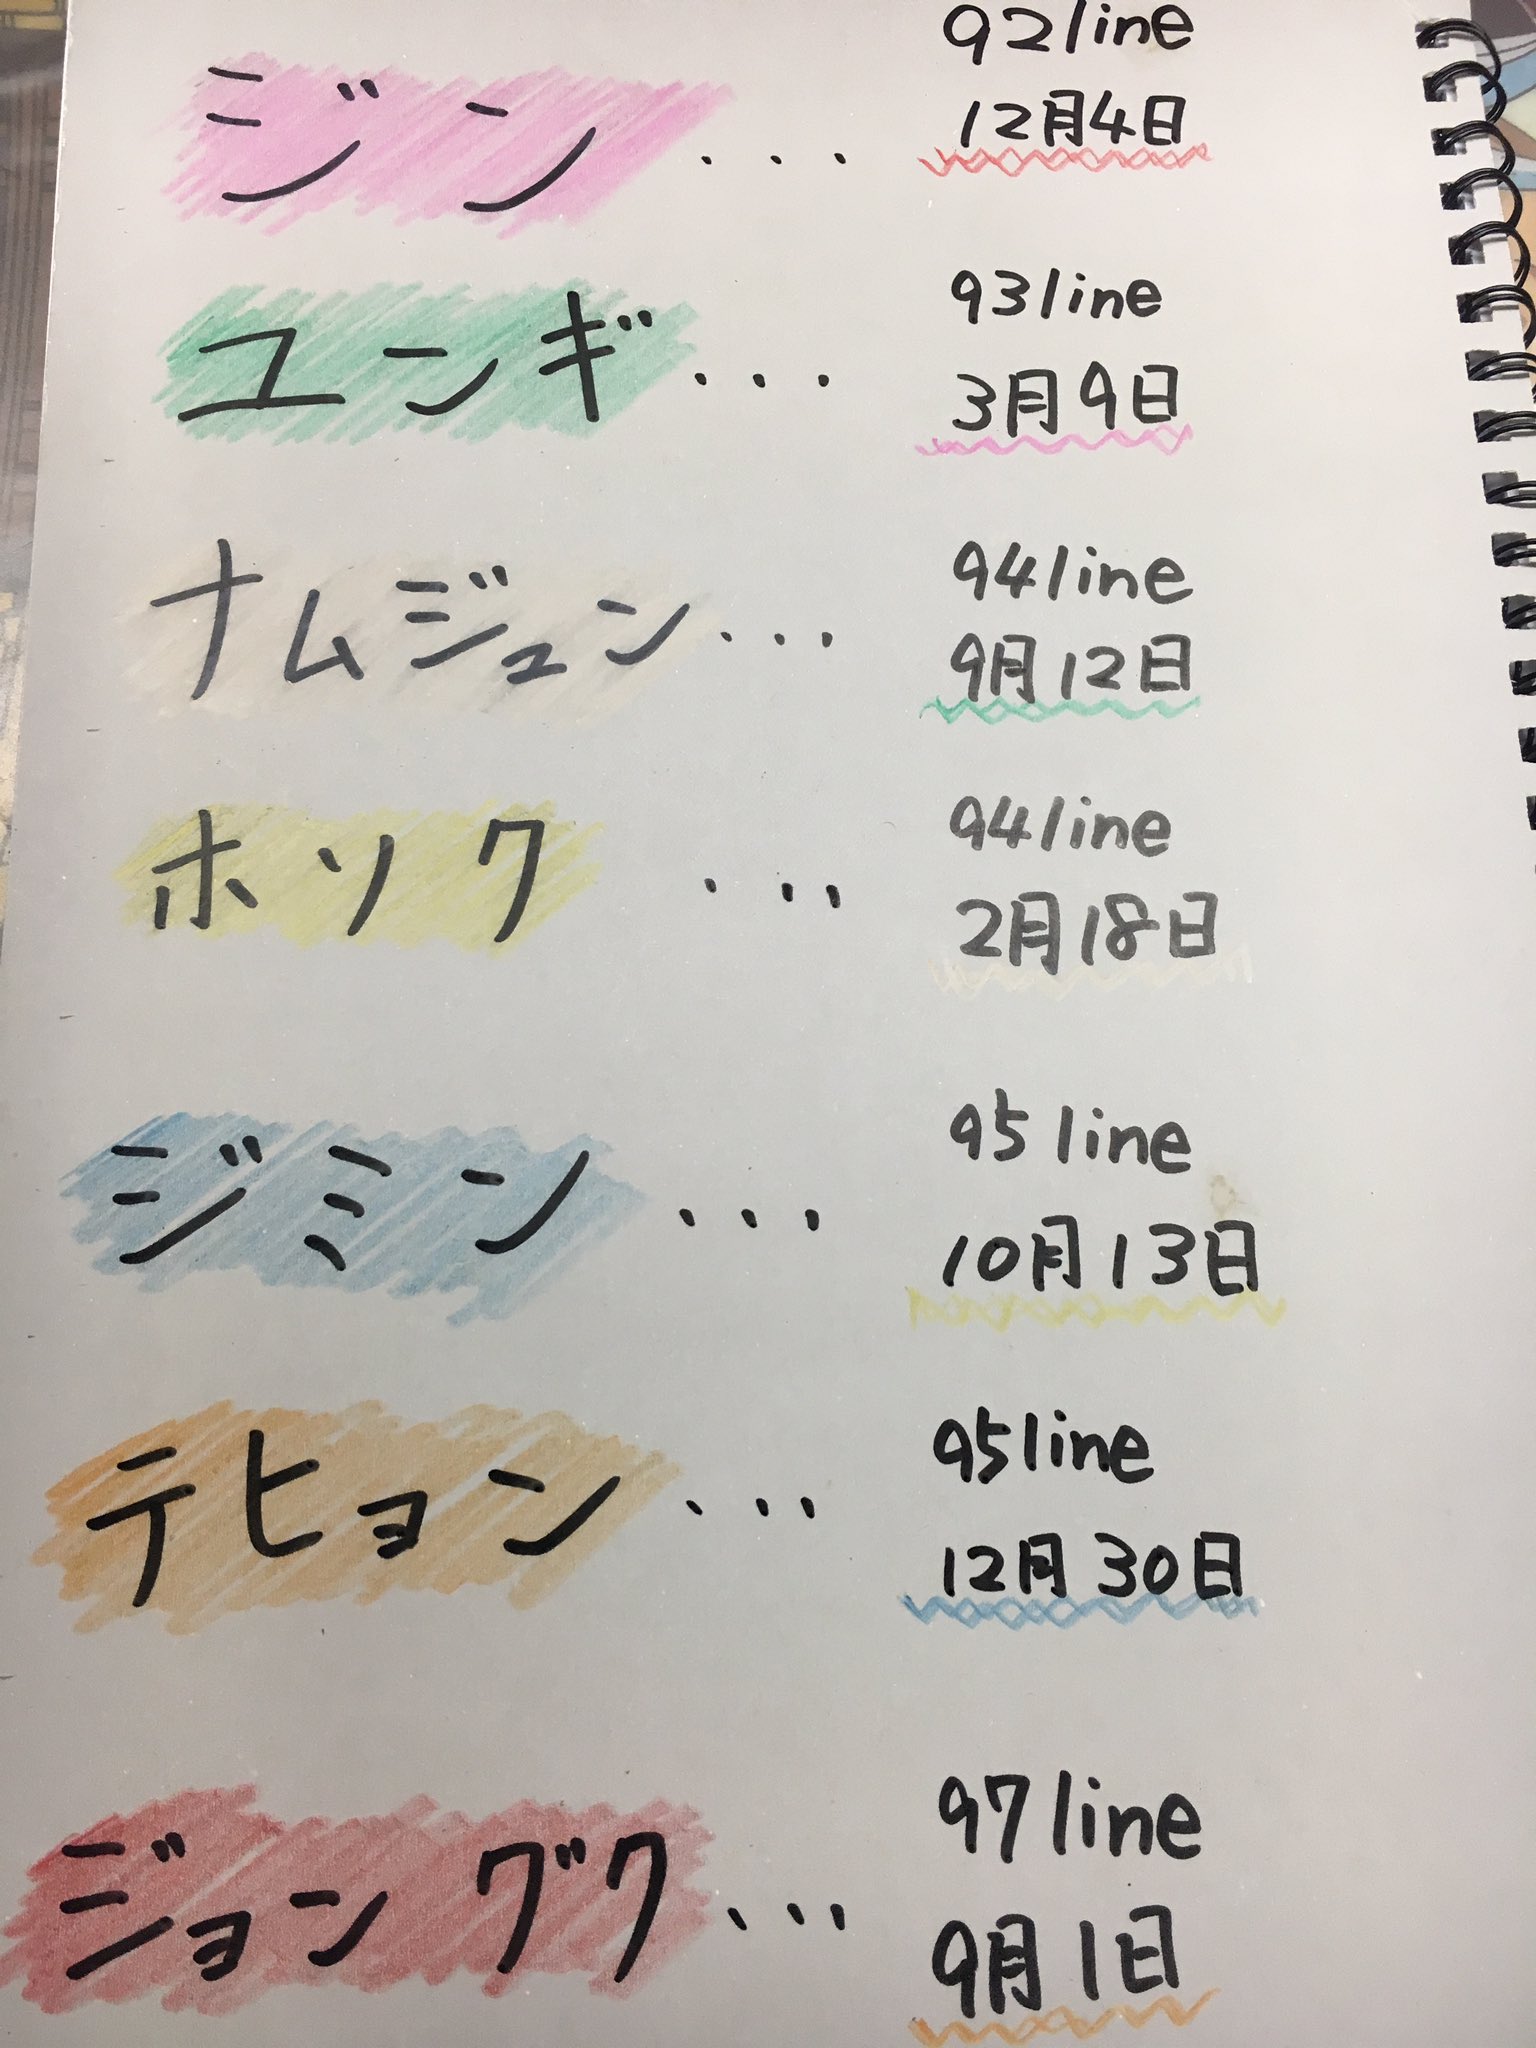 92line
ジン... 12月4日
93line
ユンギ... 3月9日
94line
ナムジュン... 9月12日
94line
ホソク ... 2月18日
95line
ジミン... 10月13日
95line
テヒョン... 12月30日
97line
ジョングク... 9月1日